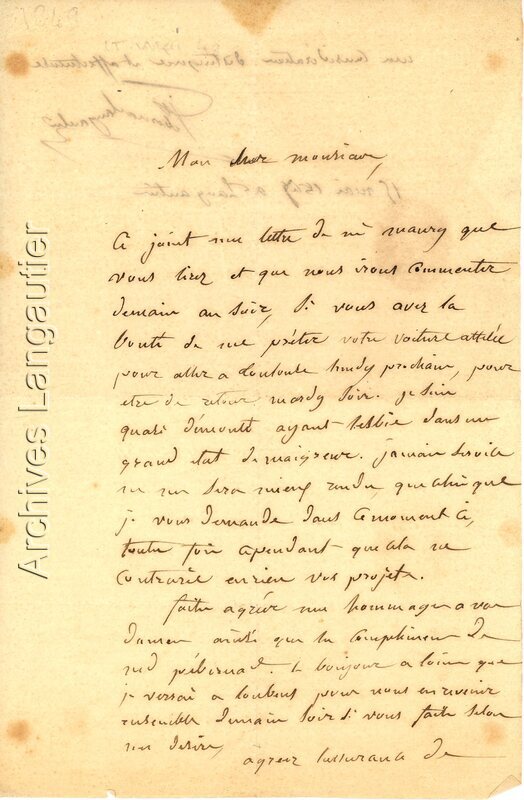 1849
Mon cher monsieur,
Ci joint une lettre de mr maury que
vous lirez et que nous irons commenter
demain au soir, Si vous avez la
bonté de me prêter votre voiture attelée
pour aller a toulouse lundy prochain, pour
etre de retour mardy Soir. je suis
quasi démonté ayant lesbie dans un
grand état de maigreur. jamais Service
ne me sera mieux rendu, que celui que
je vous demande dans ce moment ci,
toute fois cependant que cela ne
contrarie en rien vos projets.
faite agréer mes hommages a vos
dames ainsi que les complimens de
le bonjour a que
je verrai a loubens pour nous en revenir
ensemble demain Soir Si vous faite Selon
mes desirs,
agreez lassurance de
Archives Langautier